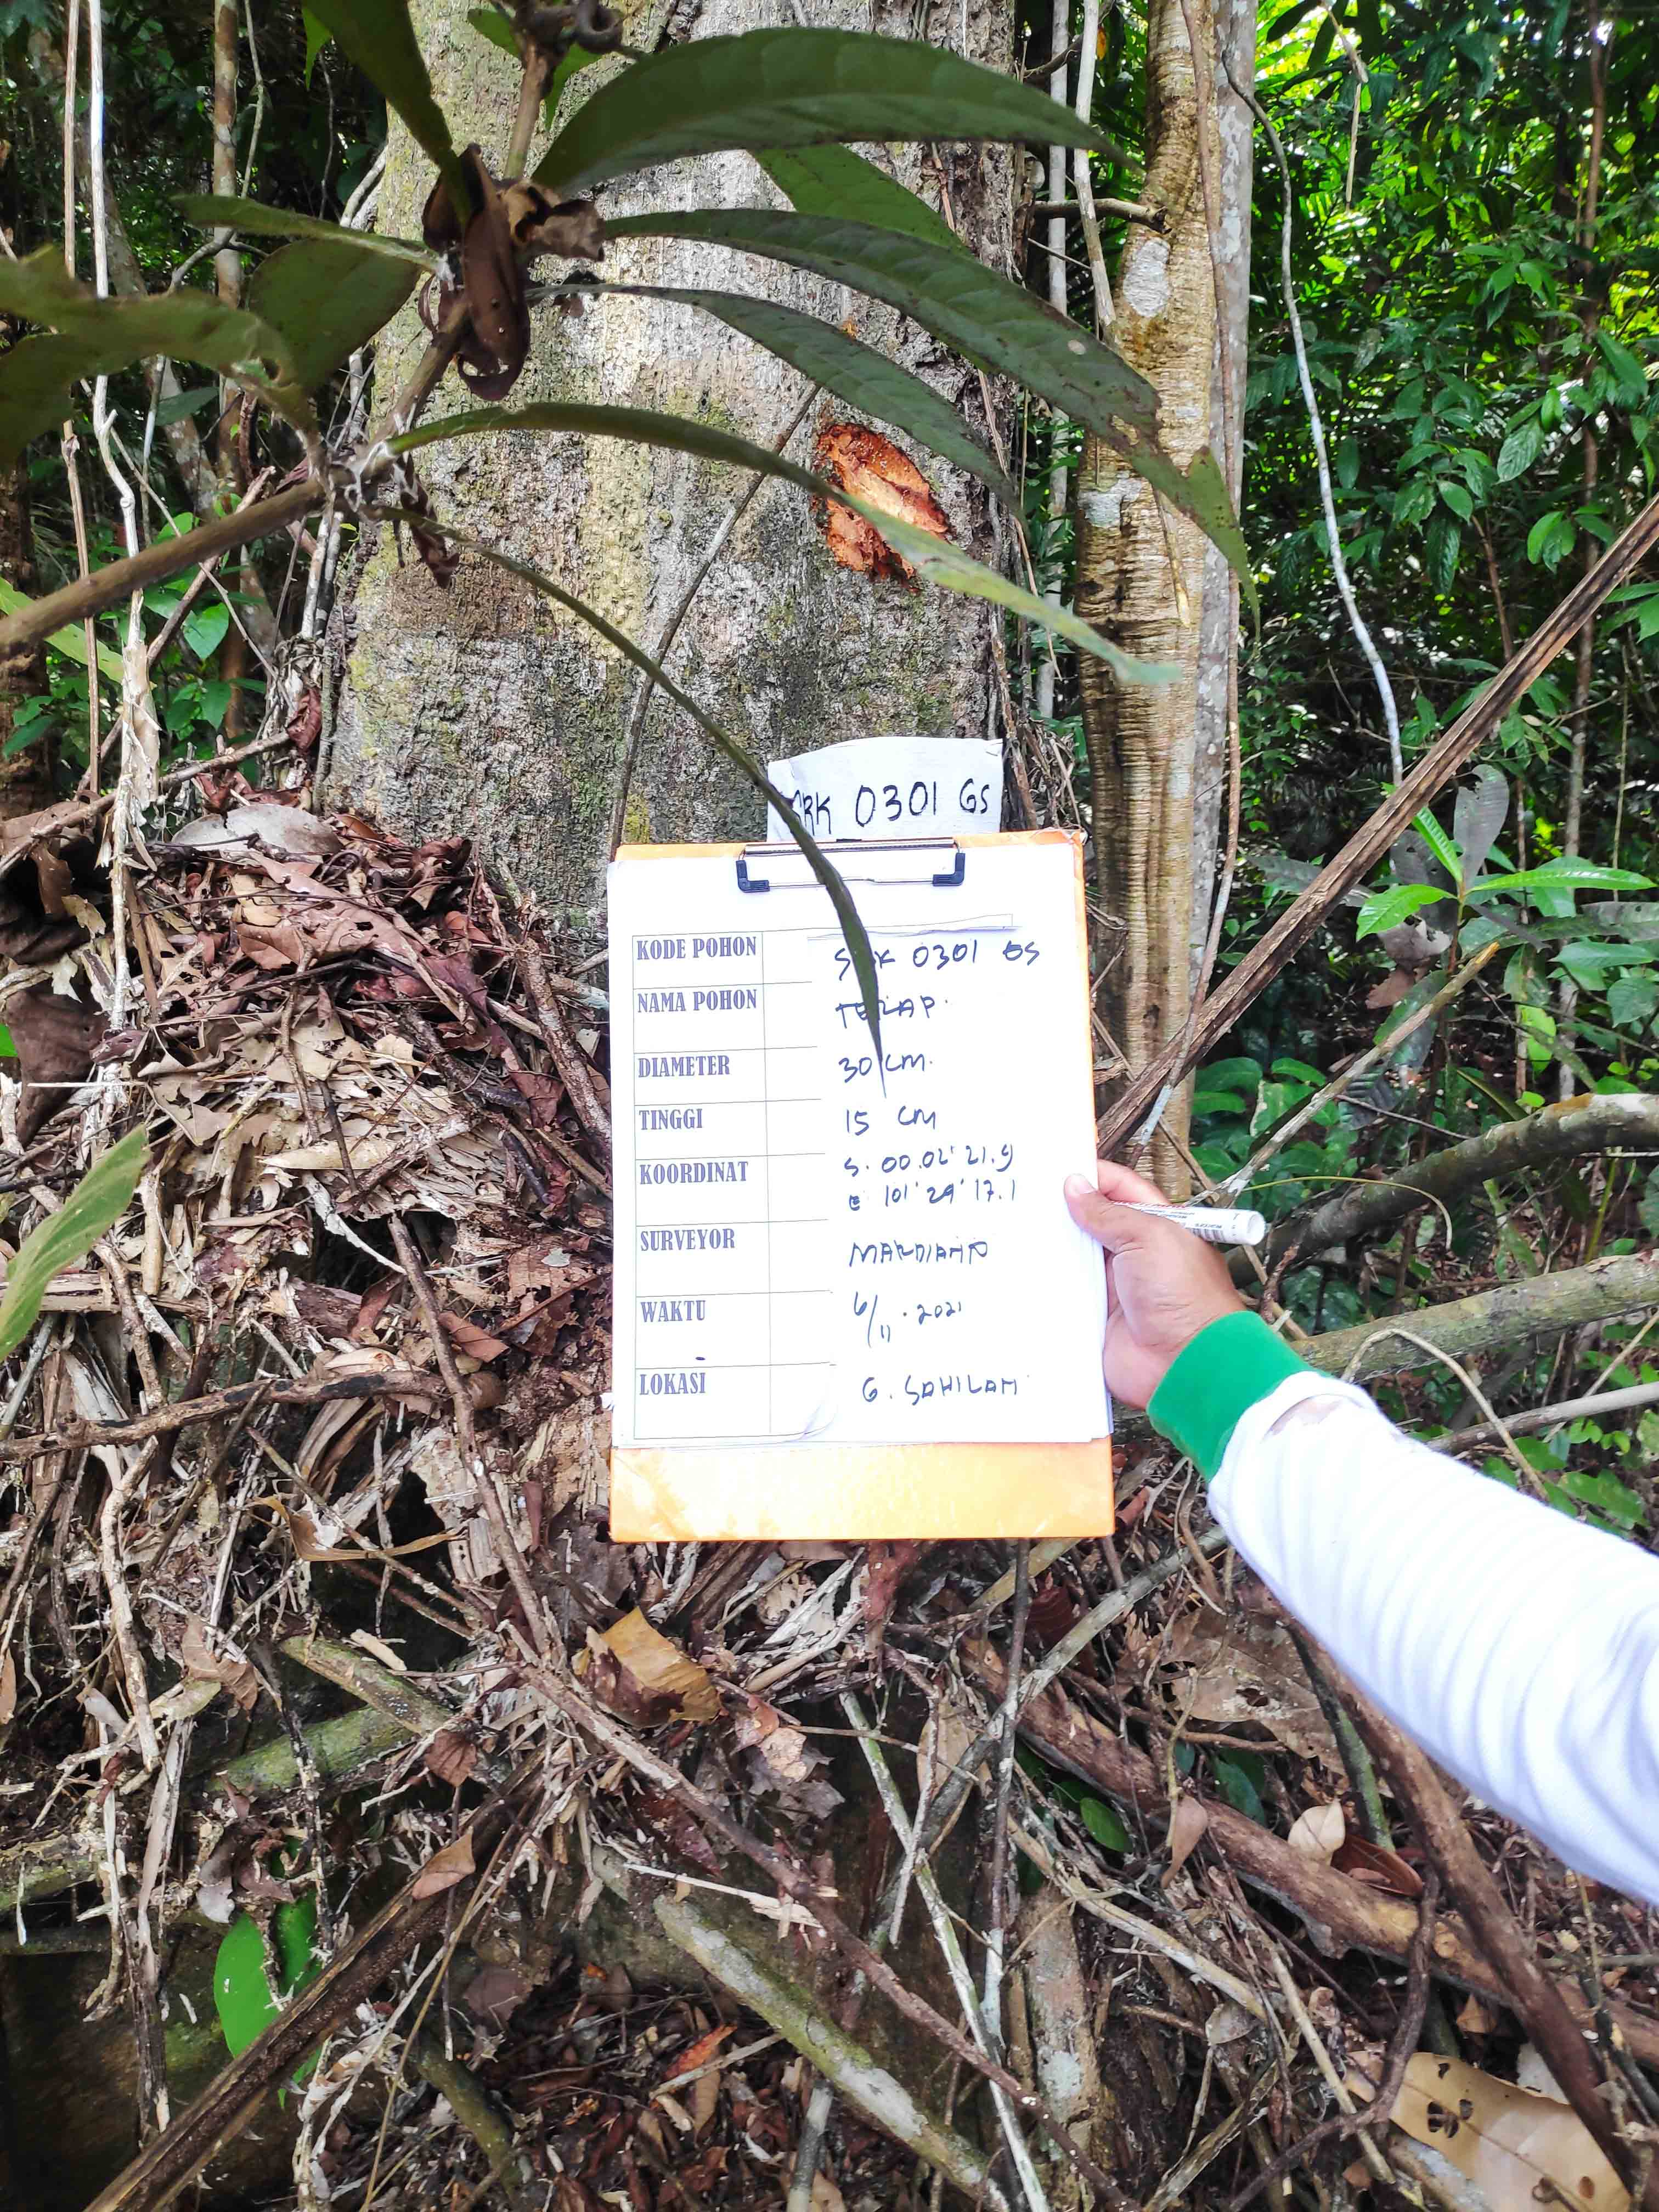 RK 0301 GS
KODE POHON 0301 GS
NAMA POHON
DIAMETER 30 CM.
TINGGI 15 CM
KOORDINAT S. 00.02' 21.9
E 101' 29' 17.1
SURVEYOR
WAKTU 6/11.2021
LOKASI G. SAHILAN